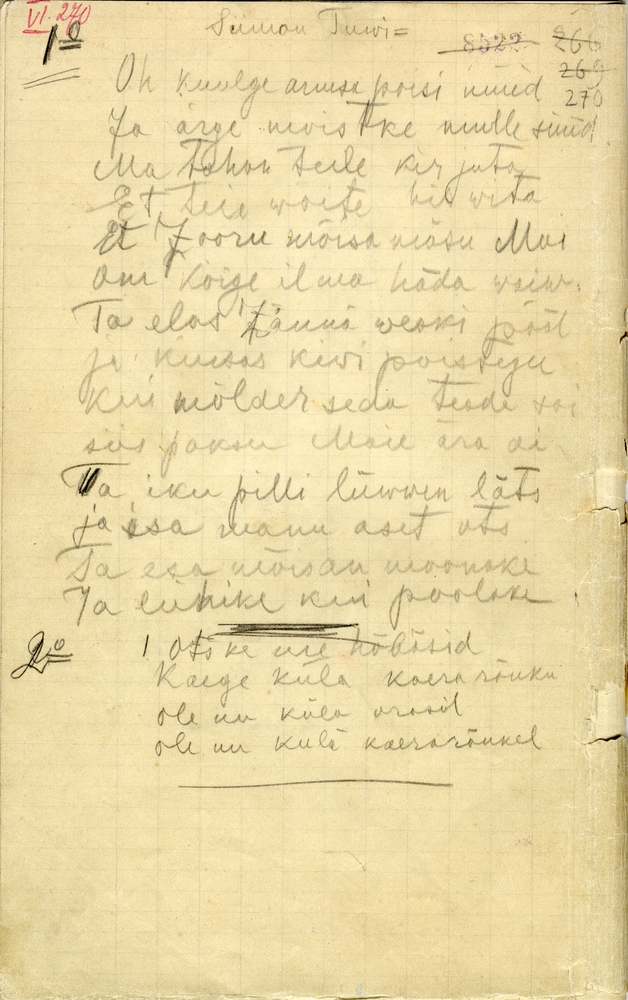 VI. 270
Siimon Tuwi=
8522 266
1º 269
270
Oh kuulge armsa poisi nüüd
Ja ärge moistke mulle süüd
Ma tahan teile kirjuta
Et teie woite hit wita
Et Jooru mõisa mõsu Mai
Om kõige ilma häda waiw.
Ta elas Jännä weski pääl
ja kiusas kiwi poissega
Kui mölder seda teada sai
siis paksu Maie ära ai
Ta iku pilli lüwwen läts
ja esa manu aset ots
Ta esa mõisan moonake
Ja lühike kui poolake
2º ! Otske me hõbõsid
Kaege küla kaera rõuku
ole nu küla orasil
ole nu külä kaerarõukel